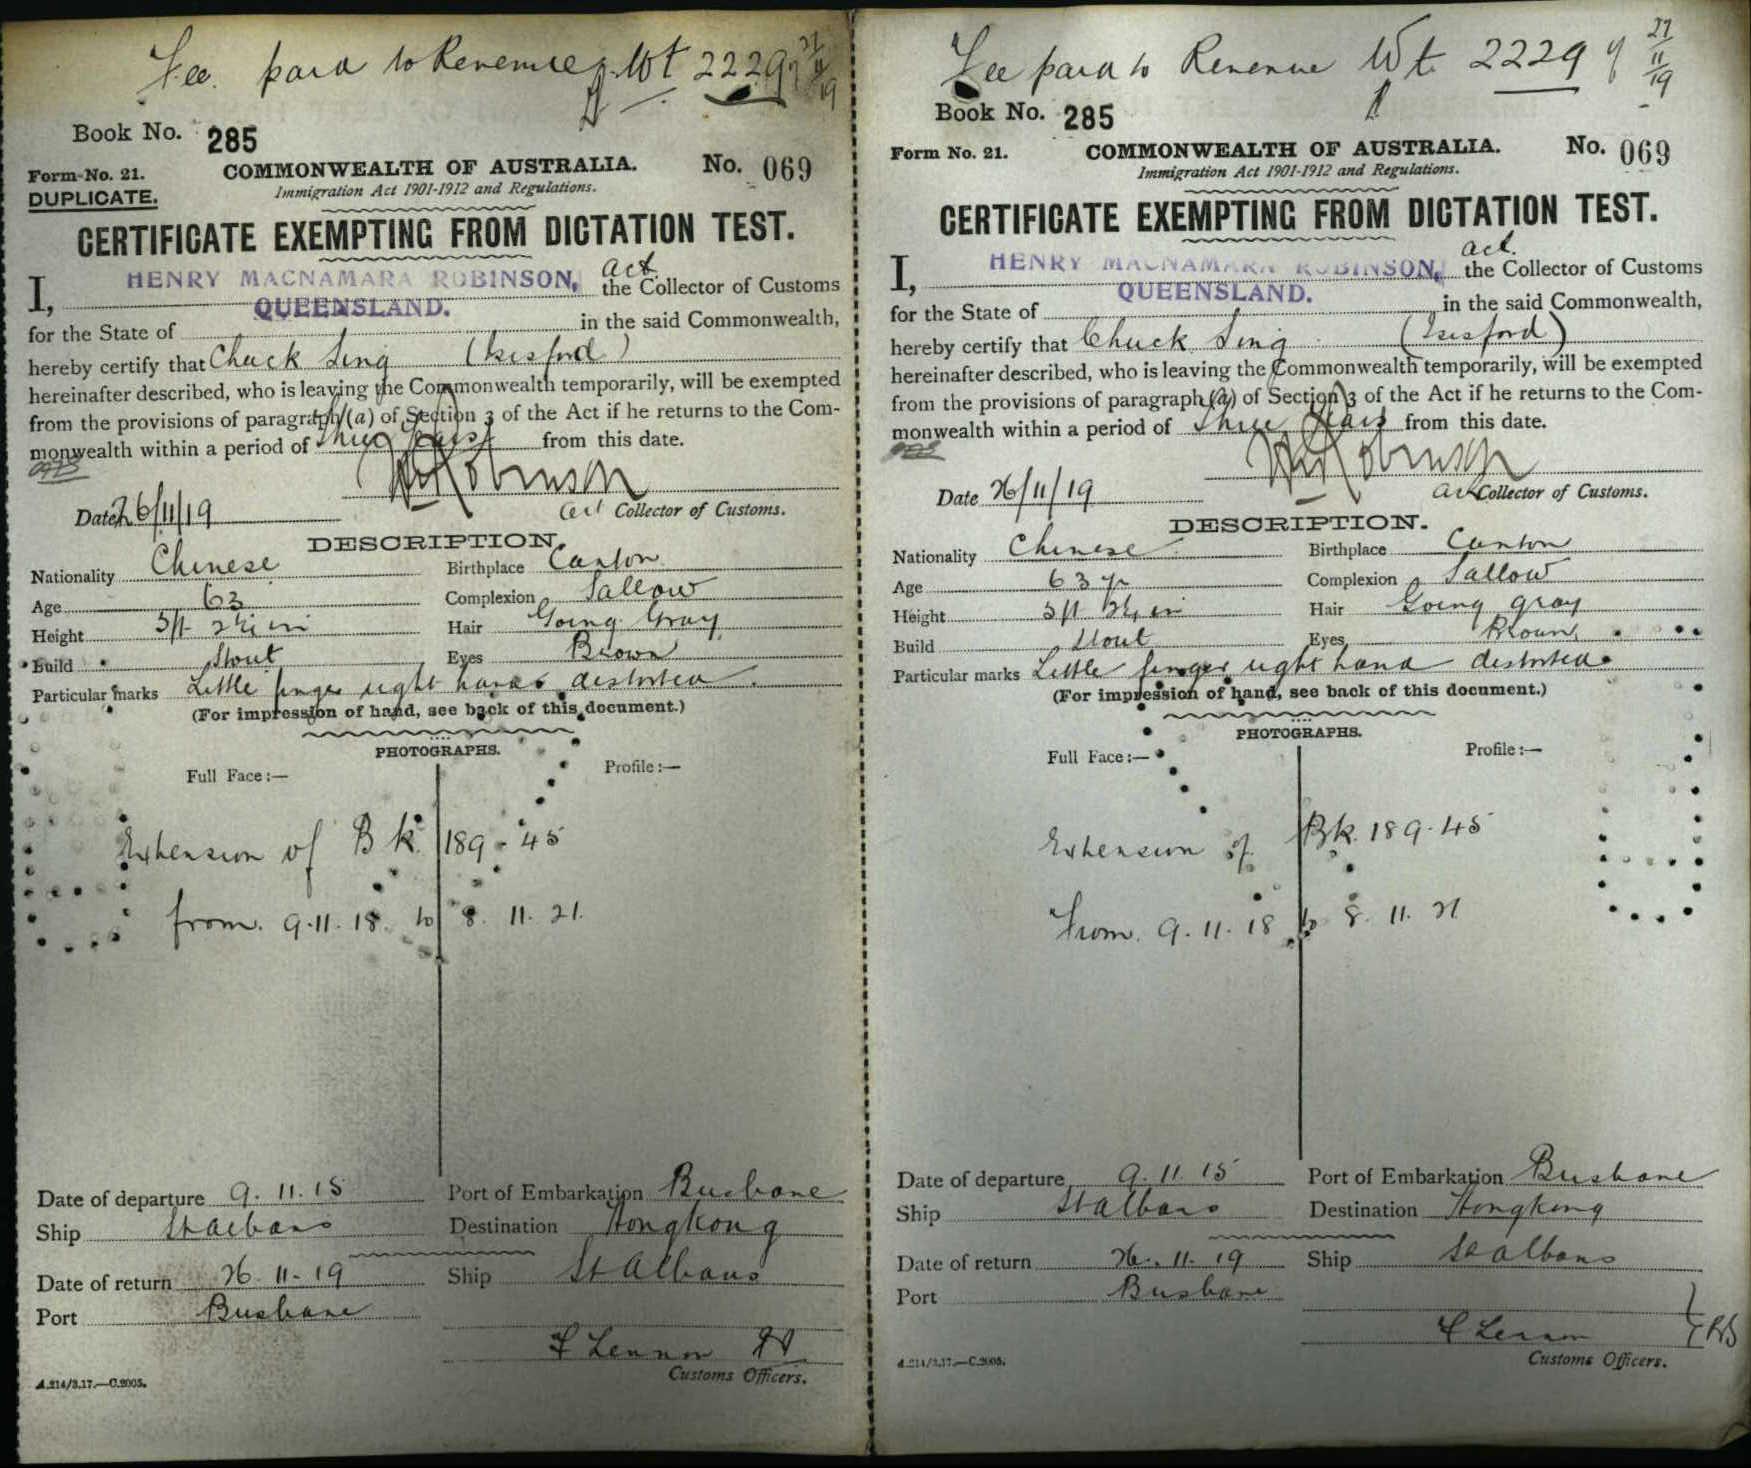 Fee paid to Revenue Wt 2229 of 27/11/19
Book No. 285
Form No. 21.
DUPLICATE.
COMMONWEALTH OF AUSTRALIA.
No. 069
Immigration Act 1901-1912 and Regulations.
CERTIFICATE EXEMPTING FROM DICTATION TEST.
act.
I, HENRY MACNAMARA ROBINSON, the Collector of Customs
for the State of QUEENSLAND. in the said Commonwealth,
hereby certify that Chuck Sing (Isisford)
hereinafter described, who is leaving the Commonwealth temporarily, will be exempted
from the provisions of paragraph (a) of Section 3 of the Act if he returns to the Com-
monwealth within a period of three years from this date.
HM Robinson
Date 26/11/19
act Collector of Customs.
DESCRIPTION.
Nationality Chinese Birthplace Canton
Age 63 Complexion Sallow
Height 5ft 2½ in Hair Going Gray
Build Stout Eyes Brown
Particular marks Little finger right hand distorted.
(For impression of hand, see back of this document.)
PHOTOGRAPHS.
Full Face:— Profile:—
Extension of Bk 189-45
from 9.11.18 to 8.11.21.
Date of departure 9.11.15 Port of Embarkation Brisbane
Ship St Albans Destination Hongkong
Date of return 26.11.19 Ship St Albans
Port Brisbane
F Lennon
Customs Officers.
A.214/3.17.—C.2005.
Fee paid to Revenue Wt 2229 of 27/11/19
Book No. 285
Form No. 21.
COMMONWEALTH OF AUSTRALIA.
No. 069
Immigration Act 1901-1912 and Regulations.
CERTIFICATE EXEMPTING FROM DICTATION TEST.
act.
I, HENRY MACNAMARA ROBINSON, the Collector of Customs
for the State of QUEENSLAND. in the said Commonwealth,
hereby certify that Chuck Sing (Isisford)
hereinafter described, who is leaving the Commonwealth temporarily, will be exempted
from the provisions of paragraph (a) of Section 3 of the Act if he returns to the Com-
monwealth within a period of three years from this date.
HM Robinson
Date 26/11/19
act Collector of Customs.
DESCRIPTION.
Nationality Chinese Birthplace Canton
Age 63 yr Complexion Sallow
Height 5ft 2½ in Hair Going gray
Build Stout Eyes Brown
Particular marks Little finger right hand distorted
(For impression of hand, see back of this document.)
PHOTOGRAPHS.
Full Face:— Profile:—
Extension of Bk. 189-45
From 9.11.18 to 8.11.21
Date of departure 9.11.15 Port of Embarkation Brisbane
Ship St Albans Destination Hongkong
Date of return 26.11.19 Ship St Albans
Port Brisbane
F Lennon
Customs Officers.
A.214/3.17.—C.2005.